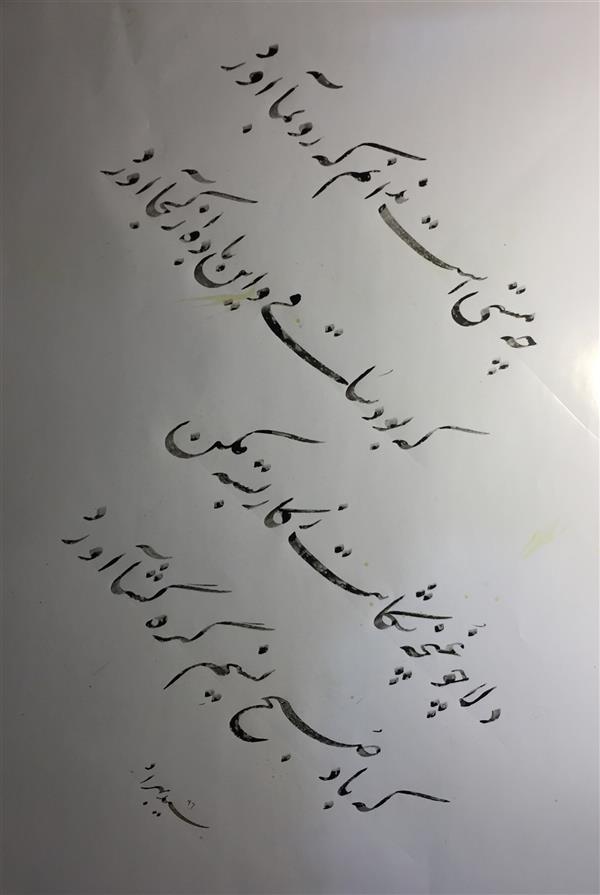 چه مستی است ندانم که رو بما آورد
که بود ساقی و این باده از کجا آورد
دلا چو غنچه شکایت ز کار بسته مکن
که باد صبح نسیم گره گشا آورد
سید